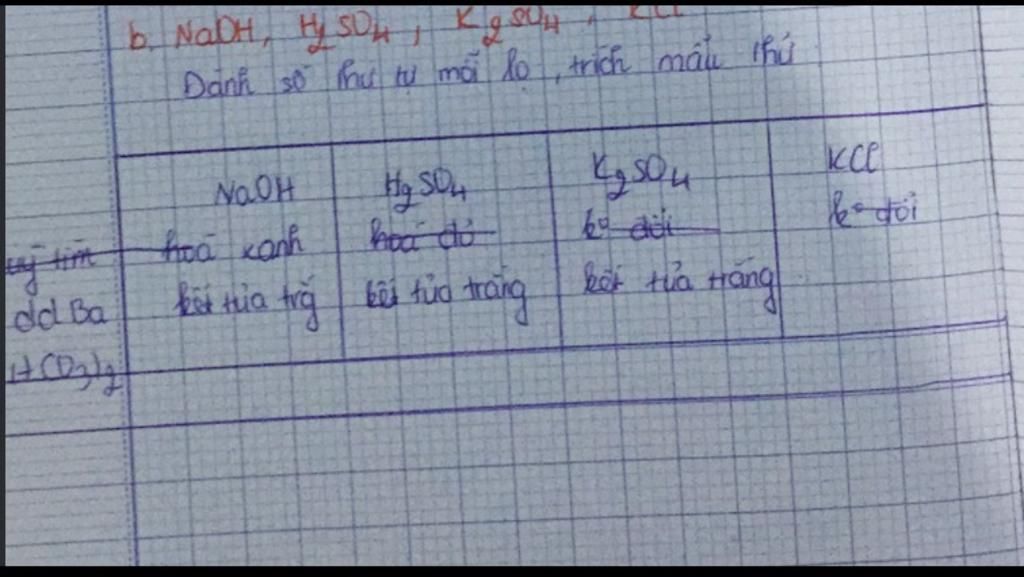 b. NaOH, H2SO4, K2SO4, KCl
Đánh số thứ tự mỗi lọ, trích mẫu thử
NaOH H2SO4 K2SO4 KCl
quỳ tím hoá xanh hoá đỏ ko đổi ko đổi
dd Ba kết tủa trắg kết tủa trắng kết tủa trắng
(HCO3)2